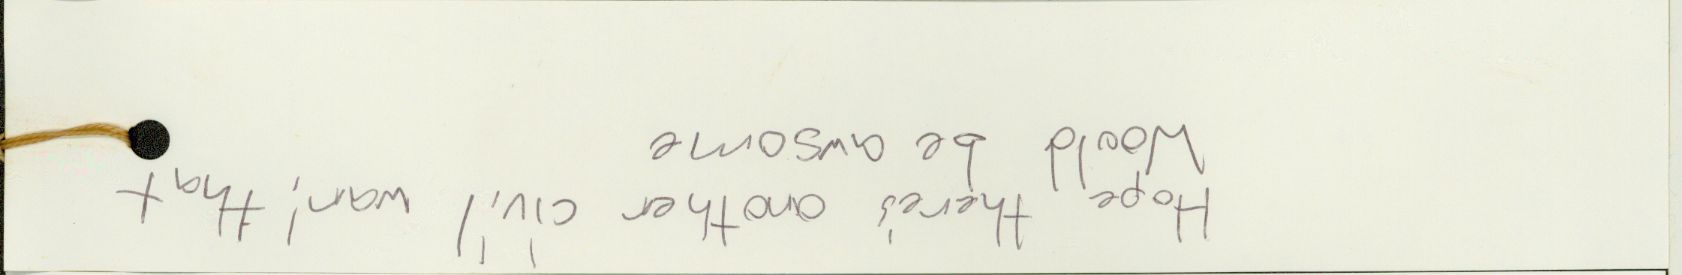 Hope there's another civil war! that
Would be awsome